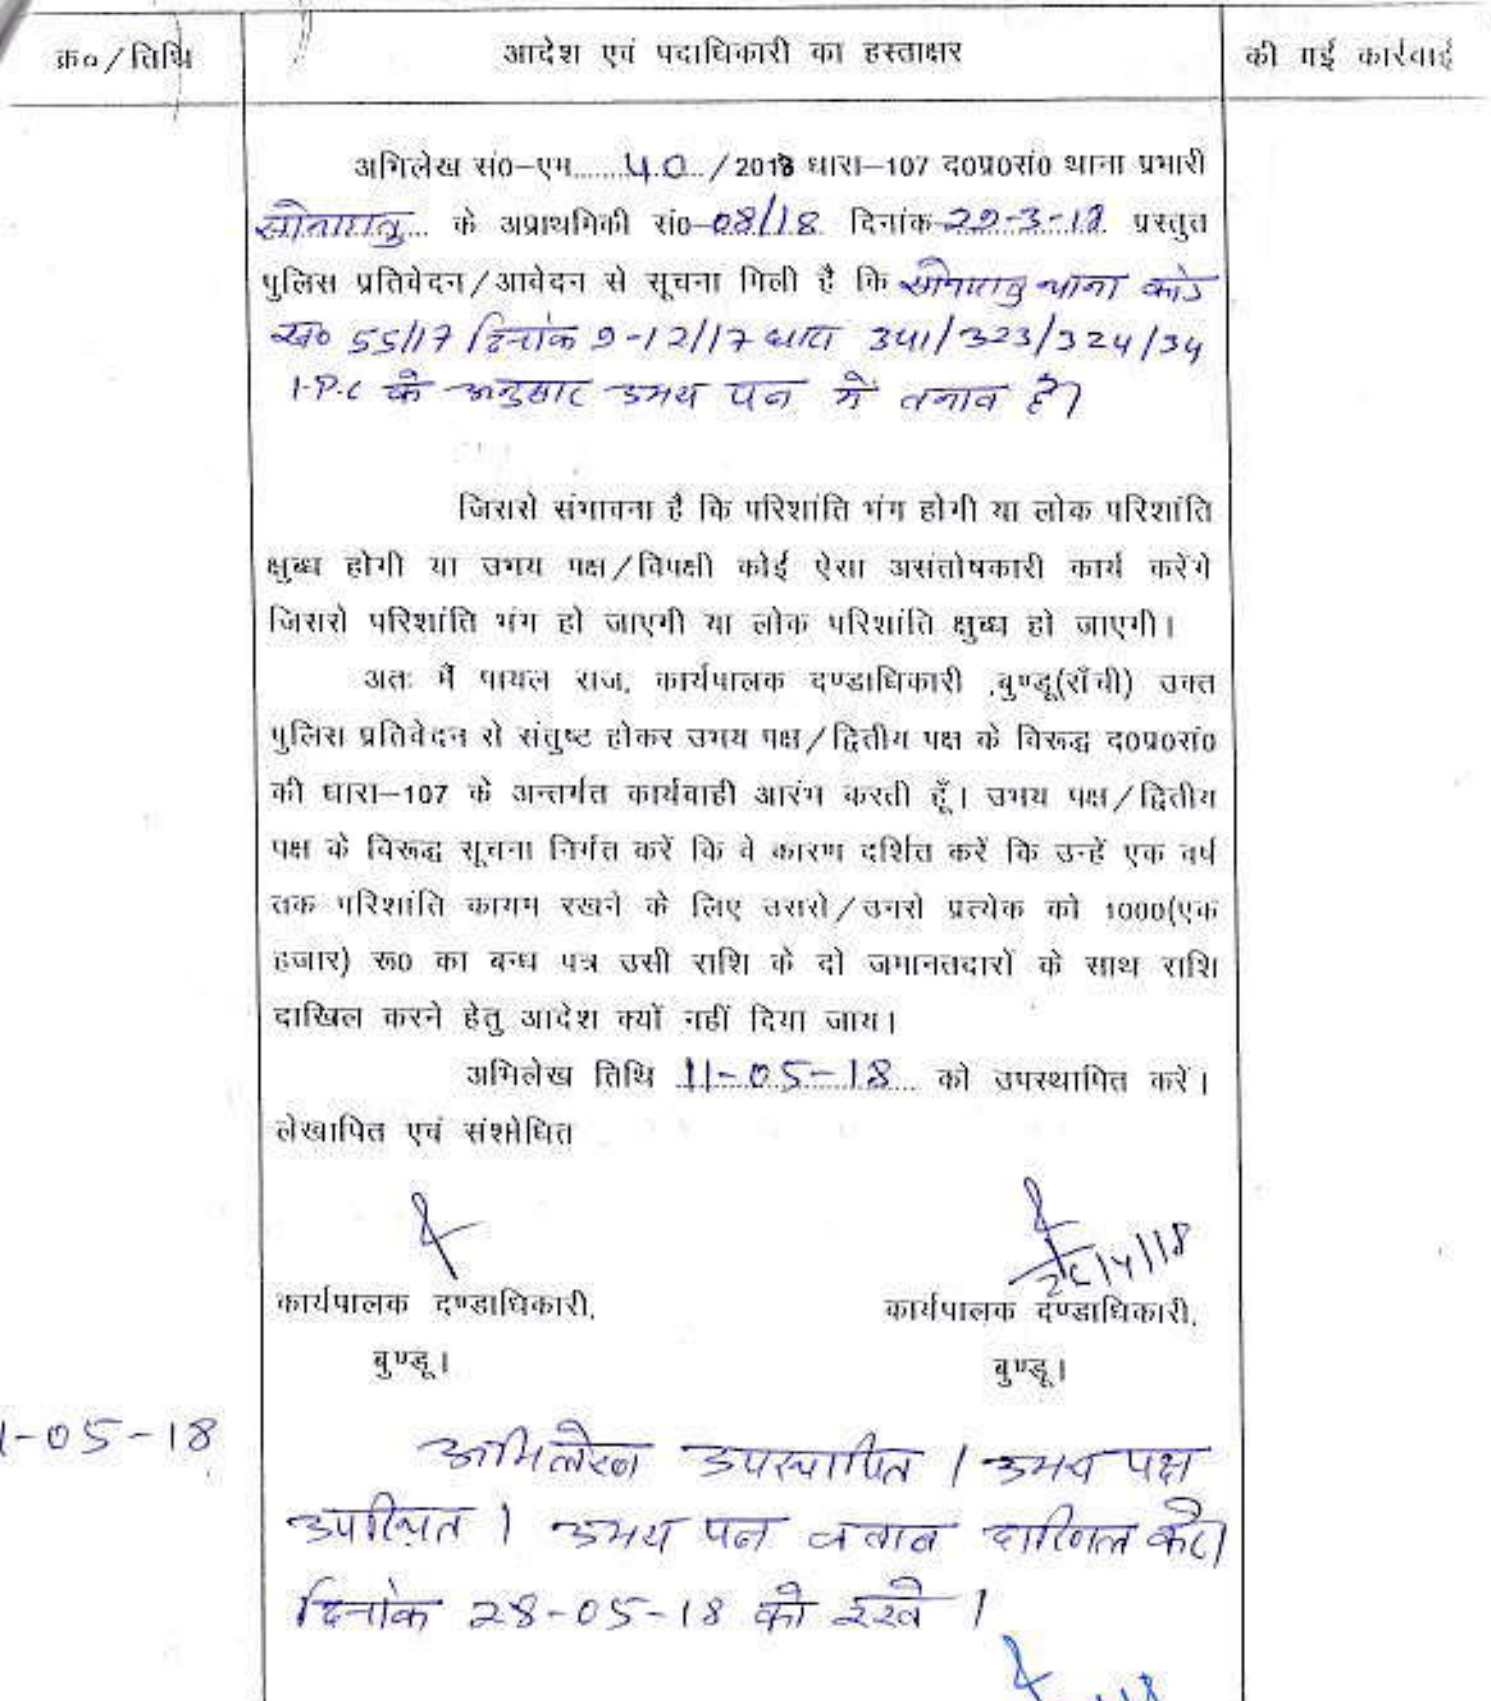 क्र०/तिथि
आदेश एवं पदाधिकारी का हस्ताक्षर
की गई कार्रवाई
अभिलेख सं0–एम......40../2018 धारा–107 द0प्र0सं0 थाना प्रभारी
सोनाहातु... के अप्राथमिकी सं0–08/18 दिनांक–22-3-18 प्रस्तुत
पुलिस प्रतिवेदन/आवेदन से सूचना मिली है कि सोनाहातु थाना कांड
सं० 55/17 दिनांक 9-12/17 धारा 341/323/324/34
I.P.C के अनुसार उभय पक्ष में तनाव है।
जिससे संभावना है कि परिशांति भंग होगी या लोक परिशांति
क्षुब्ध होगी या उभय पक्ष/विपक्षी कोई ऐसा असंतोषकारी कार्य करेंगे
जिससे परिशांति भंग हो जाएगी या लोक परिशांति क्षुब्ध हो जाएगी।
अतः मैं पायल राज, कार्यपालक दण्डाधिकारी ,बुण्डू(राँची) उक्त
पुलिस प्रतिवेदन से संतुष्ट होकर उभय पक्ष/द्वितीय पक्ष के विरूद्ध द0प्र0सं0
की धारा–107 के अन्तर्गत कार्यवाही आरंभ करती हूँ। उभय पक्ष/द्वितीय
पक्ष के विरूद्ध सूचना निर्गत करें कि वे कारण दर्शित करें कि उन्हें एक वर्ष
तक परिशांति कायम रखने के लिए उससे/उनसे प्रत्येक को 1000(एक
हजार) रू0 का बन्ध पत्र उसी राशि के दो जमानतदारों के साथ राशि
दाखिल करने हेतु आदेश क्यों नहीं दिया जाय।
अभिलेख तिथि 11-05-18 को उपस्थापित करें।
लेखापित एवं संशोधित
कार्यपालक दण्डाधिकारी,
कार्यपालक दण्डाधिकारी,
बुण्डू।
बुण्डू।
1-05-18
अभिलेख उपस्थापित। उभय पक्ष
उपस्थित। उभय पक्ष जवाब दाखिल करें।
दिनांक 28-05-18 को रखें।